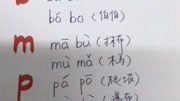 b
bó bo（伯伯）
m mā bù（抹布）
mù mǎ（木马）
p pá pō（爬坡）